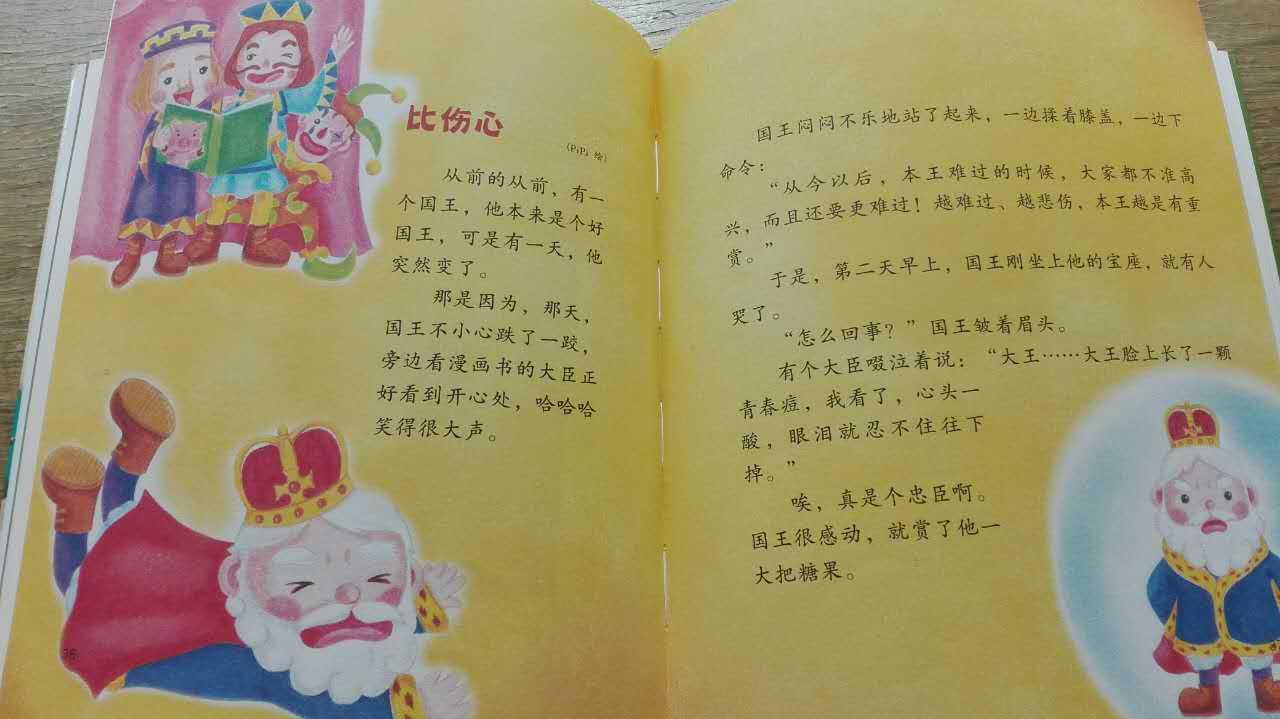 比伤心
(PiPi 绘)
从前的从前，有一
个国王，他本来是个好
国王，可是有一天，他
突然变了。
那是因为，那天，
国王不小心跌了一跤，
旁边看漫画书的大臣正
好看到开心处，哈哈哈
笑得很大声。
36
国王闷闷不乐地站了起来，一边揉着膝盖，一边下
命令：
“从今以后，本王难过的时候，大家都不准高
兴，而且还要更难过！越难过、越悲伤，本王越是有重
赏。”
于是，第二天早上，国王刚坐上他的宝座，就有人
哭了。
“怎么回事？”国王皱着眉头。
有个大臣啜泣着说：“大王……大王脸上长了一颗
青春痘，我看了，心头一
酸，眼泪就忍不住往下
掉。”
唉，真是个忠臣啊。
国王很感动，就赏了他一
大把糖果。